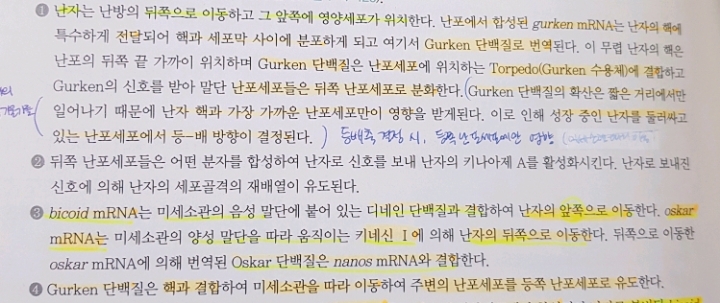 ❶ 난자는 난방의 뒤쪽으로 이동하고 그 앞쪽에 영양세포가 위치한다. 난포에서 합성된 gurken mRNA는 난자의 핵에
특수하게 전달되어 핵과 세포막 사이에 분포하게 되고 여기서 Gurken 단백질로 번역된다. 이 무렵 난자의 핵은
난포의 뒤쪽 끝 가까이 위치하며 Gurken 단백질은 난포세포에 위치하는 Torpedo(Gurken 수용체)에 결합하고
Gurken의 신호를 받아 말단 난포세포들은 뒤쪽 난포세포로 분화한다. (Gurken 단백질의 확산은 짧은 거리에서만
일어나기 때문에 난자 핵과 가장 가까운 난포세포만이 영향을 받게된다. 이로 인해 성장 중인 난자를 둘러싸고
있는 난포세포에서 등-배 방향이 결정된다. ) 등배축 결정 시,
❷ 뒤쪽 난포세포들은 어떤 분자를 합성하여 난자로 신호를 보내 난자의 키나아제 A를 활성화시킨다. 난자로 보내진
신호에 의해 난자의 세포골격의 재배열이 유도된다.
❸ bicoid mRNA는 미세소관의 음성 말단에 붙어 있는 디네인 단백질과 결합하여 난자의 앞쪽으로 이동한다. oskar
mRNA는 미세소관의 양성 말단을 따라 움직이는 키네신 Ⅰ에 의해 난자의 뒤쪽으로 이동한다. 뒤쪽으로 이동한
oskar mRNA에 의해 번역된 Oskar 단백질은 nanos mRNA와 결합한다.
❹ Gurken 단백질은 핵과 결합하여 미세소관을 따라 이동하여 주변의 난포세포를 등쪽 난포세포로 유도한다.